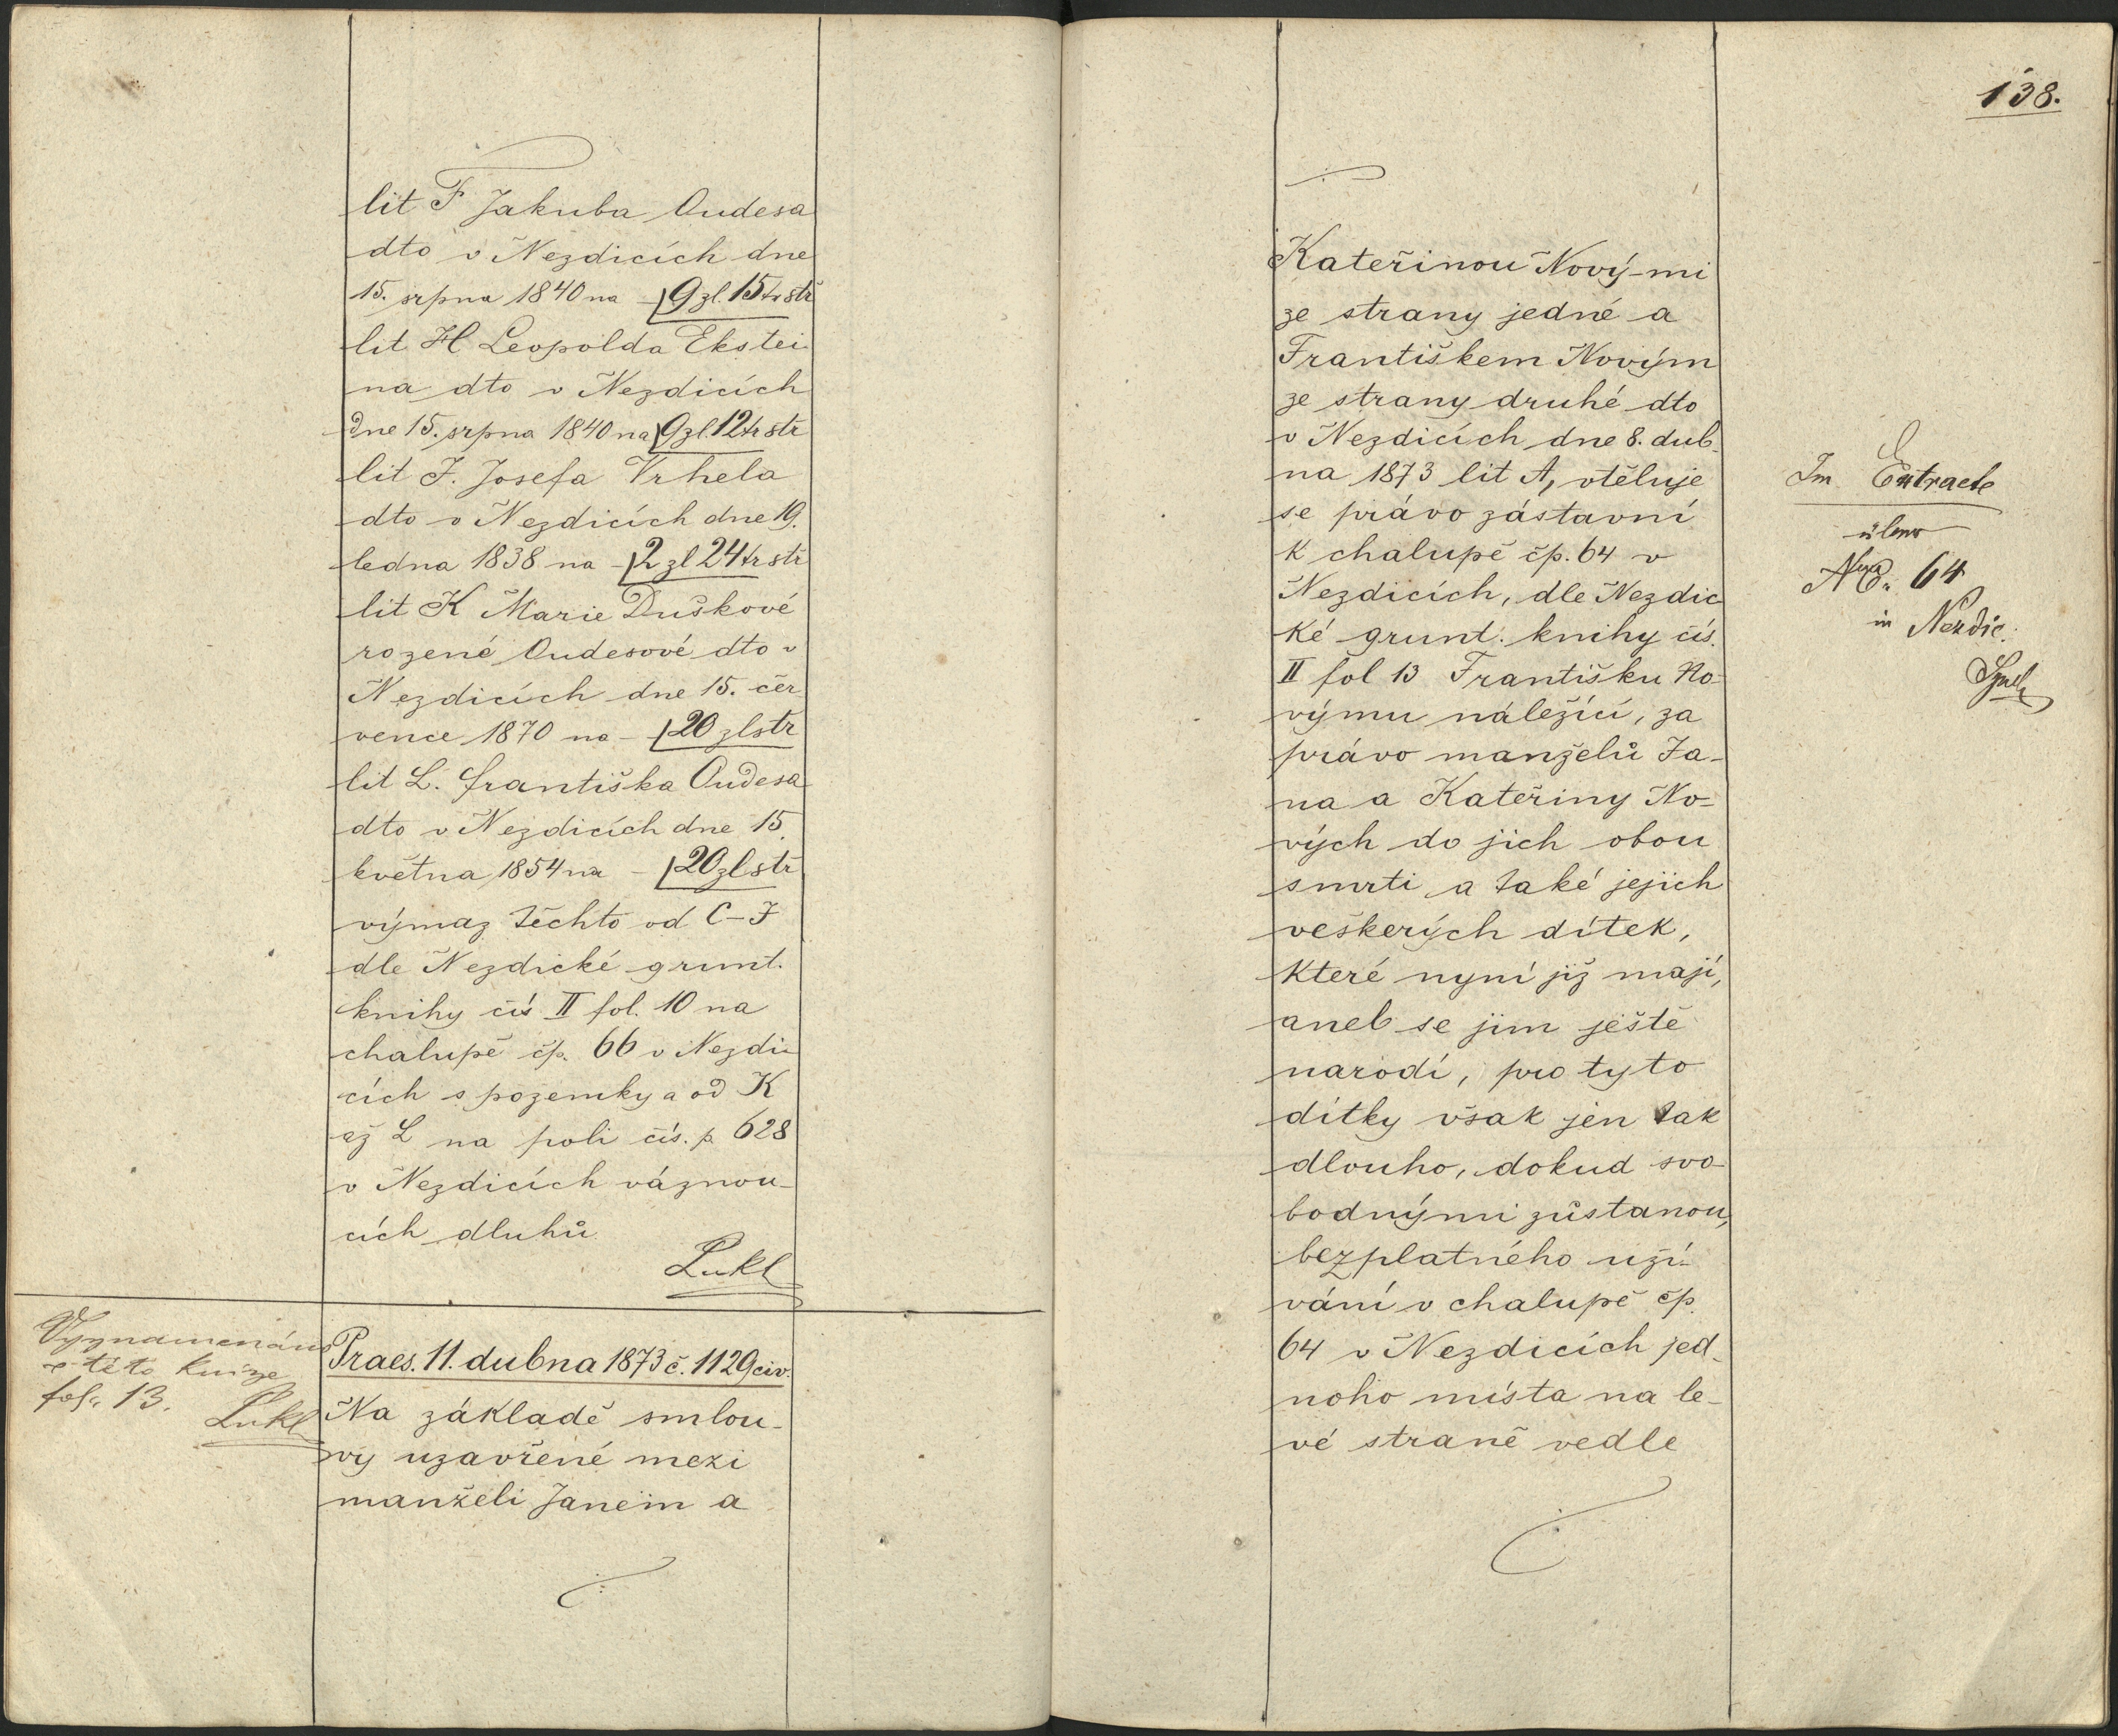 lit F Jakuba Oudesa
dto v Nezdicích dne
15. srpna 1840 na – 9 zl. 15 kr stř
lit H Leopolda Ekstei-
na dto v Nezdicích
dne 15. srpna 1840 na 9 zl. 12 kr stř
lit J. Josefa Vrhela
dto v Nezdicích dne 19.
ledna 1838 na – 2 zl 24 kr stř
lit K Marie Duškové
rozené Oudesové dto v
Nezdicích dne 15. čer
vence 1870 na – 20 zl stř
lit L. Františka Oudesa
dto v Nezdicích dne 15.
května 1854 na – 20 zl stř
výmaz těchto od C–J
dle Nezdické grunt.
knihy čís II fol. 10 na
chalupě čp. 66 v Nezdi-
cích s pozemky a od K
až L na poli čís. p. 628
v Nezdicích váznou-
cích dluhů
Lukl
Vyznamenáno
v této knize
fol. 13.
Lukl
Praes. 11. dubna 1873 č. 1129 civ.
Na základě smlou-
vy uzavřené mezi
manželi Janem a
138.
Kateřinou Nový-mi
ze strany jedné a
Františkem Novým
ze strany druhé dto
v Nezdicích dne 8. dub-
na 1873 lit A, vtěluje
se právo zástavní
k chalupě čp. 64 v
Nezdicích, dle Nezdic
ké grunt. knihy čís.
II fol 13 Františku No-
výmu náležící, za
právo manželů Ja-
na a Kateřiny No-
vých do jich obou
smrti a také jejich
veškerých dítek,
které nyní již mají,
aneb se jim ještě
narodí, pro tyto
dítky však jen tak
dlouho, dokud svo-
bodnými zůstanou,
bezplatného uží-
vání v chalupě čp.
64 v Nezdicích jed-
noho místa na le-
vé straně vedle
Im Extracte
über
64
in Nezdic.